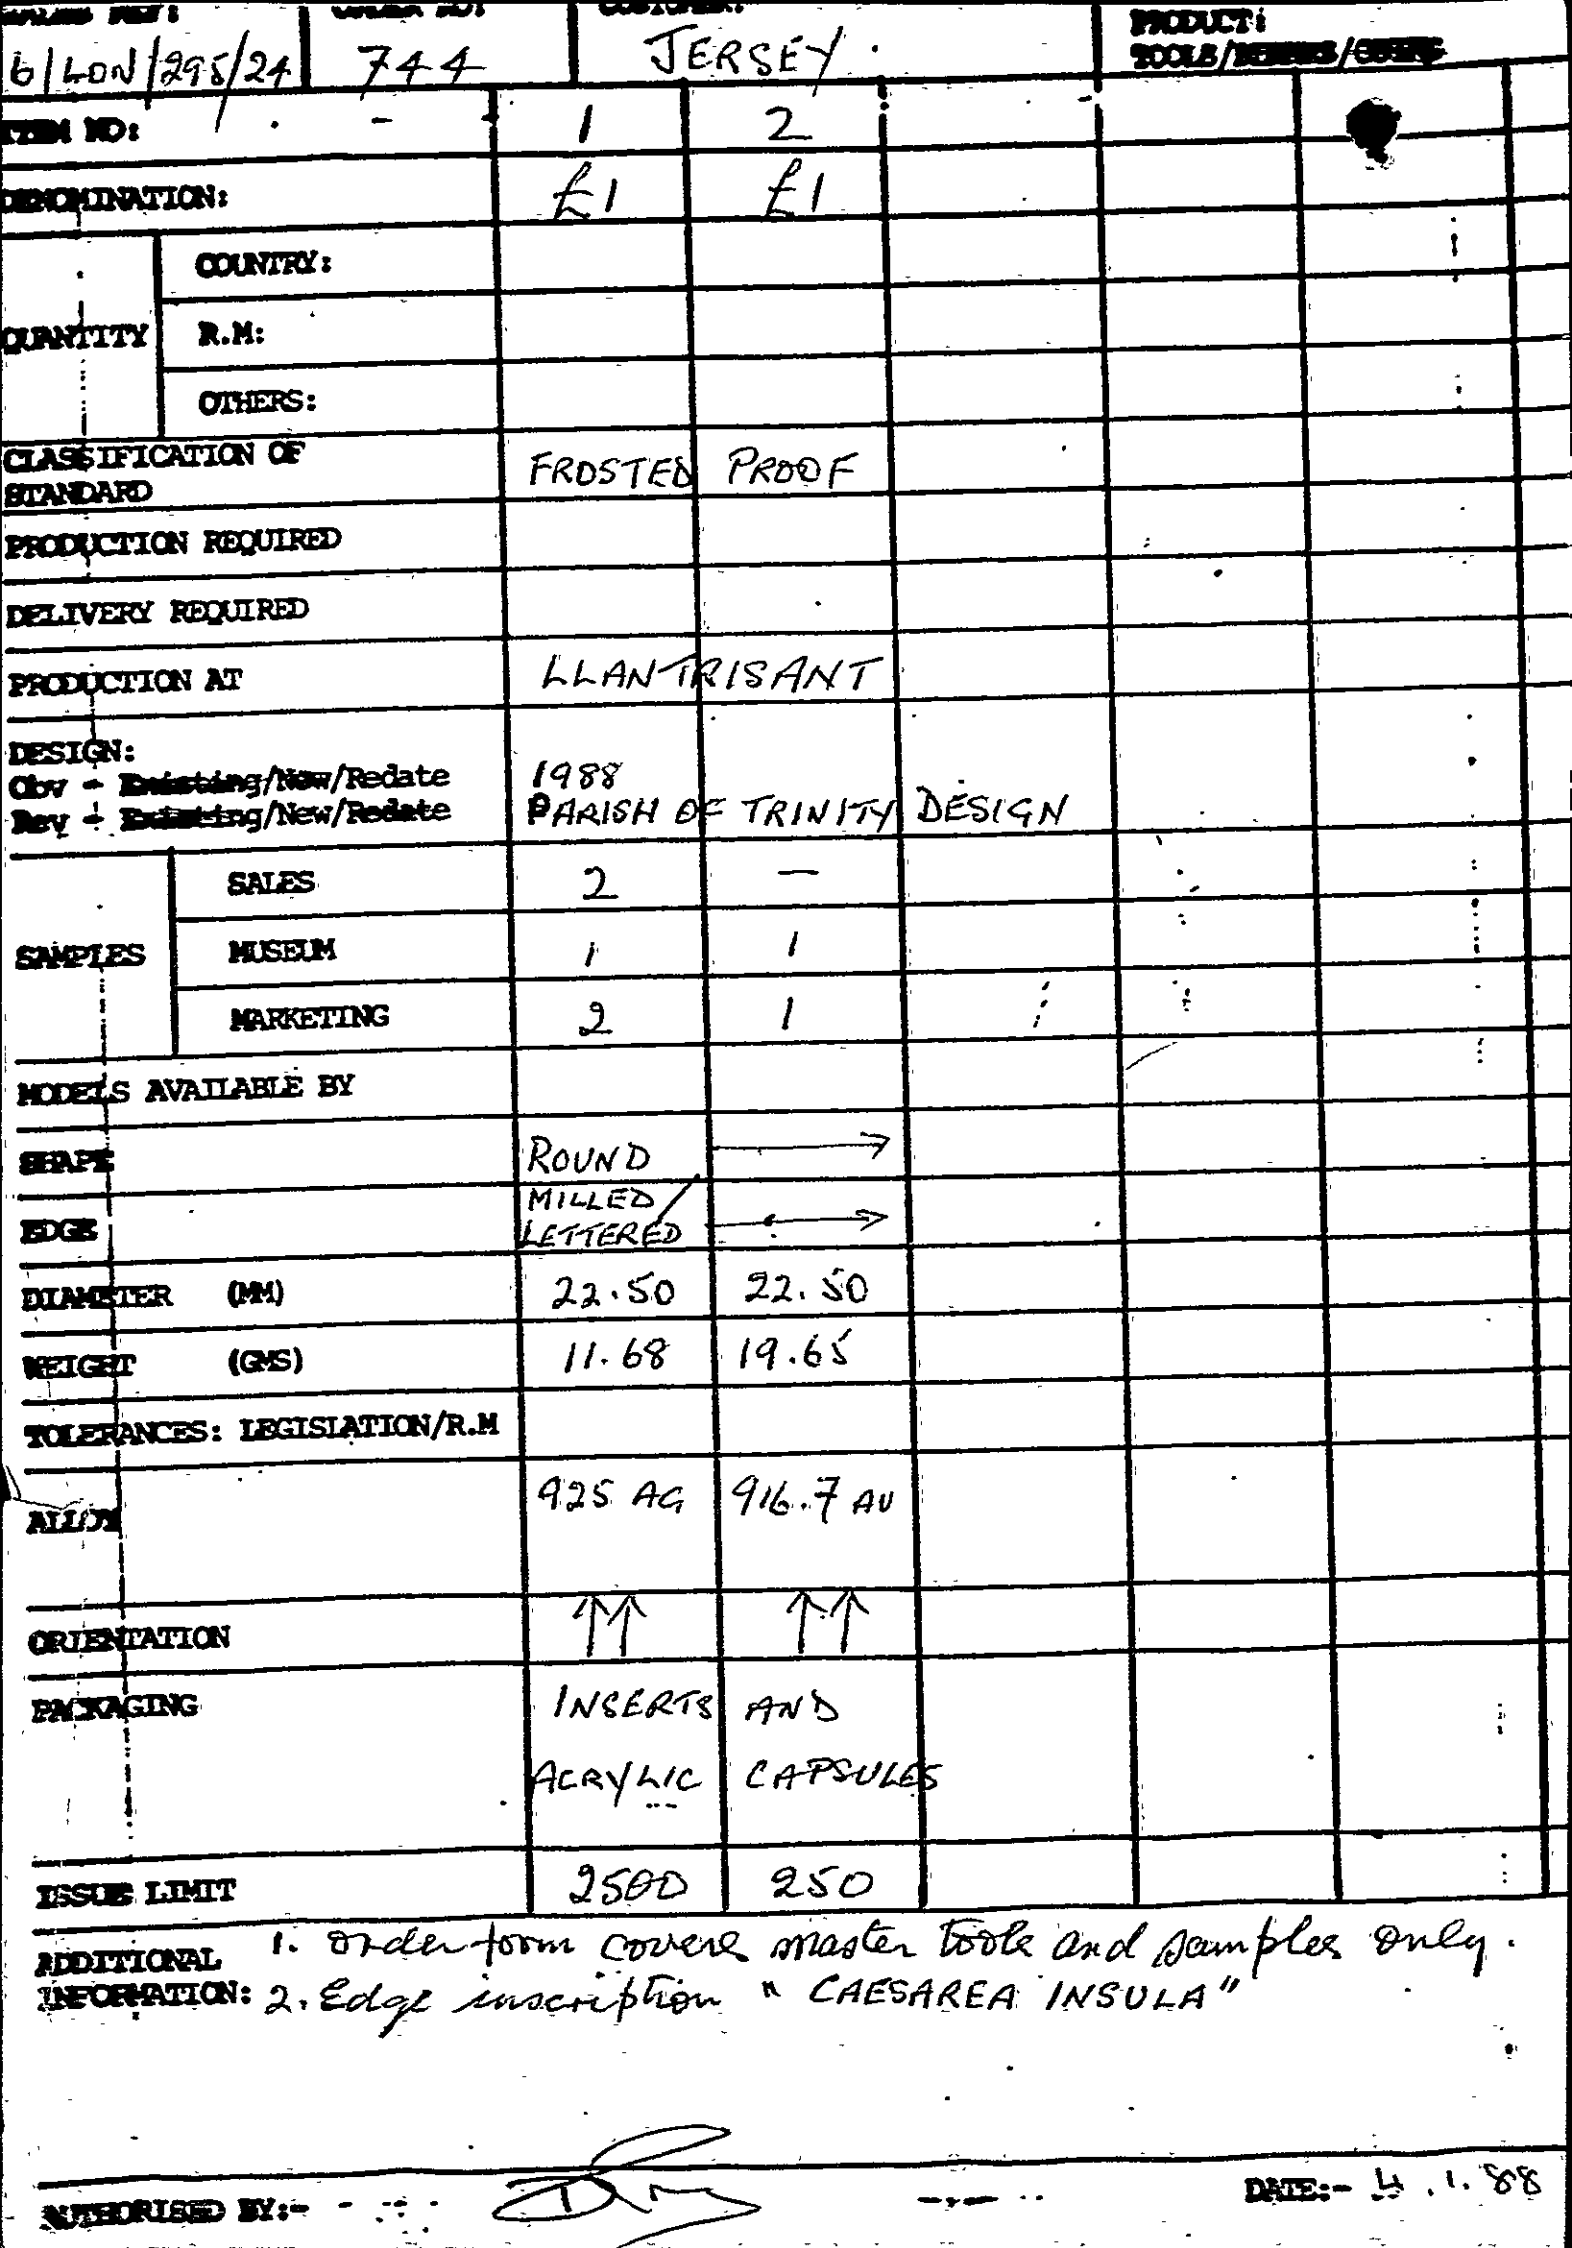 6/LON/295/24 744 JERSEY PRODUCT:
TOOLS/BLANKS/COINS
ITEM NO: 1 2
DENOMINATION: £1 £1
COUNTRY:
QUANTITY R.M:
OTHERS:
CLASSIFICATION OF
STANDARD FROSTED PROOF
PRODUCTION REQUIRED
DELIVERY REQUIRED
PRODUCTION AT LLANTRISANT
DESIGN:
Obv - Existing/New/Redate 1988
Rev - Existing/New/Redate PARISH OF TRINITY DESIGN
SALES 2 —
SAMPLES MUSEUM 1 1
MARKETING 2 1
MODELS AVAILABLE BY
SHAPE ROUND →
MILLED
EDGE LETTERED →
DIAMETER (MM) 22.50 22.50
WEIGHT (GMS) 11.68 19.65
TOLERANCES: LEGISLATION/R.M
ALLOY 925 AG 916.7 AU
ORIENTATION ↑↑ ↑↑
PACKAGING INSERTS AND
ACRYLIC CAPSULES
ISSUE LIMIT 2500 250
ADDITIONAL 1. Order form covers master tools and samples only.
INFORMATION: 2. Edge inscription "CAESAREA INSULA"
AUTHORISED BY:- DATE:- 4.1.88